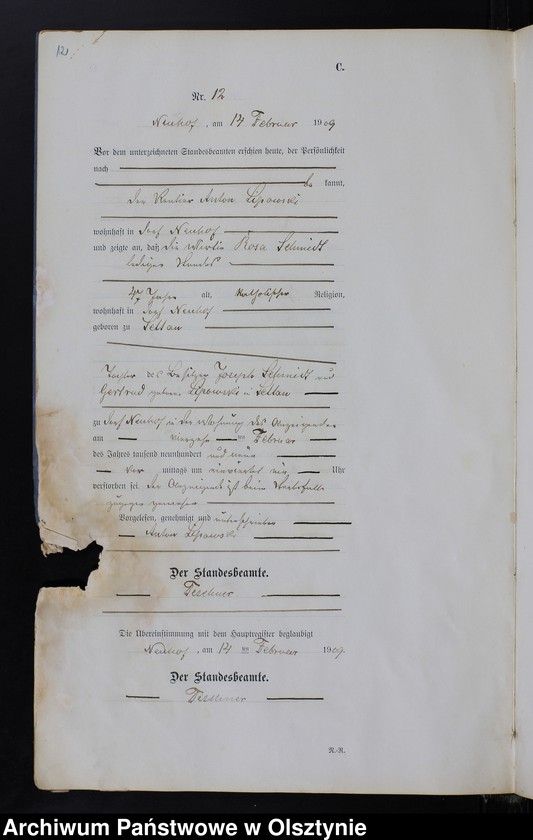 12.
C.
Nr. 12
Neuhof, am 14 Februar 1909
Vor dem unterzeichneten Standesbeamten erschien heute, der Persönlichkeit
nach
be kannt,
der Rentier Anton Lipowski
wohnhaft in Dorf Neuhof
und zeigte an, daß die Wirtin Rosa Schmidt
ledigen Standes
47 Jahre alt, katholischer Religion,
wohnhaft in Dorf Neuhof
geboren zu
Tochter des Besitzer Joseph Schmidt und
Gertrud geborene Lipowski in
zu Dorf Neuhof in der Wohnung des Anzeigenden
am Februar
des Jahres tausend neunhundert und neun
Vor mittags um Uhr
verstorben sei. Der Anzeigende ist beim Sterbefalle
zugegen gewesen
Vorgelesen, genehmigt und unterschrieben
Anton Lipowski
Der Standesbeamte.
Teschner
Die Übereinstimmung mit dem Hauptregister beglaubigt
Neuhof, am 14 ten Februar 1909.
Der Standesbeamte.
Teschner
Archiwum Państwowe w Olsztynie